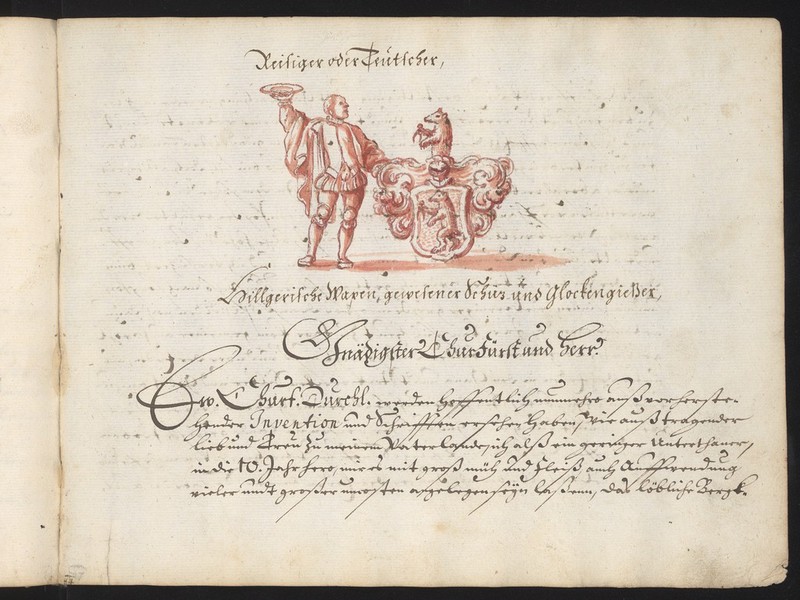 Reisiger oder Teutscher,
Hillgerische Wapen, gewesener Schüz und Glockengießer,
Gnädigster Churfürst und Herr.
Ew. Churf. Durchl. werden hoffentlich nunmehro auß vorherste-
hender Invention und Schrifften ersehen haben, wie auß tragender
lieb und Treu zu meinem Vaterlande, ich alß ein geringer Unterthaner,
in die 10. Jahr hero, mir es mit groß müh und Fleiß auch Auffwendung
vieler undt großer uncosten angelegen seyn laßenn, das löbliche Bergk-